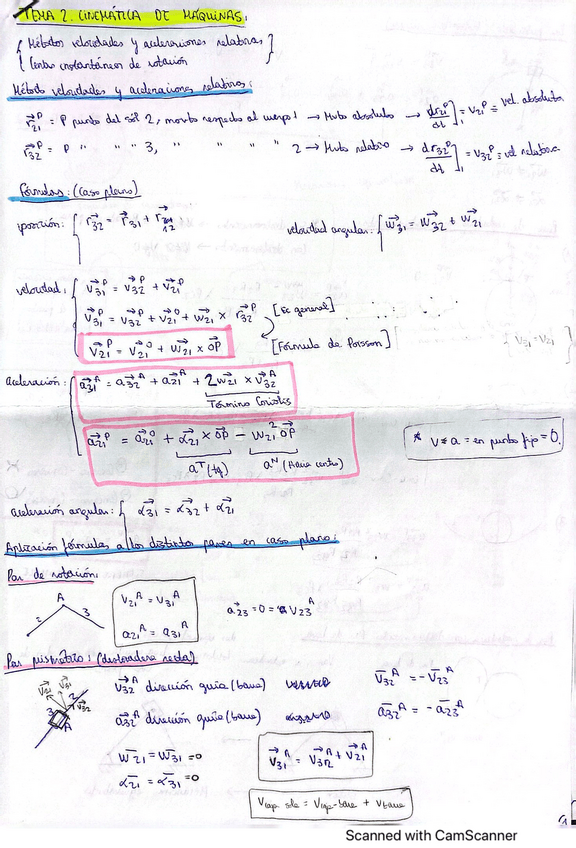 TEMA 2. CINEMÁTICA DE MÁQUINAS:
{ Métodos velocidades y aceleraciones relativas }
{ Centro instantáneos de rotación }
Método velocidades y aceleraciones relativas:
r₂₁ᴾ = P punto del sól 2, respecto al cuerpo 1 → Mvto absoluto → dr₂₁ᴾ/dt]₁ = v₂₁ᴾ ≡ vel. absoluta
r₃₂ᴾ = P " " " 3, " " " " 2 → Mvto relativo → dr₃₂ᴾ/dt] = v₃₂ᴾ ≡ vel relativa
Fórmulas: (caso plano)
posición: velocidad angular: { w₃₁ = w₃₂ + w₂₁
velocidad: { v₃₁ᴾ = v₃₂ᴾ + v₂₁ᴾ
v₃₁ᴾ = v₃₂ᴾ + v₂₁⁰ + w₂₁ × r₃₂ᴾ [Ec general]
v₂₁ᴾ = v₂₁⁰ + w₂₁ × OP [Fórmula de Poisson]
aceleración: { a₃₁ᴬ = a₃₂ᴬ + a₂₁ᴬ + 2w₂₁ × v₃₂ᴬ
Término Coriolis
a₂₁ᴾ = a₂₁⁰ + α₂₁ × OP − w₂₁² OP
* v y a = en punto fijo = 0.
aᵀ (tg) aᴺ (hacia centro)
aceleración angular: { α₃₁ = α₃₂ + α₂₁
Aplicación fórmulas a los distintos pares en caso plano:
Par de rotación:
A
2 3
v₂₁ᴬ = v₃₁ᴬ
a₂₁ᴬ = a₃₁ᴬ
a₂₃ = 0 = v₂₃ᴬ
Par prismático: (deslizadera recta)
v₃₂ᴬ dirección guía (base) v₃₂ᴬ = −v₂₃ᴬ
a₃₂ᴬ dirección guía (base) a₃₂ᴬ = −a₂₃ᴬ
3 2 A
w₂₁ = w₃₁ = 0
α₂₁ = α₃₁ = 0
v₃₁ᴬ = v₃₂ᴬ + v₂₁ᴬ
Scanned with CamScanner